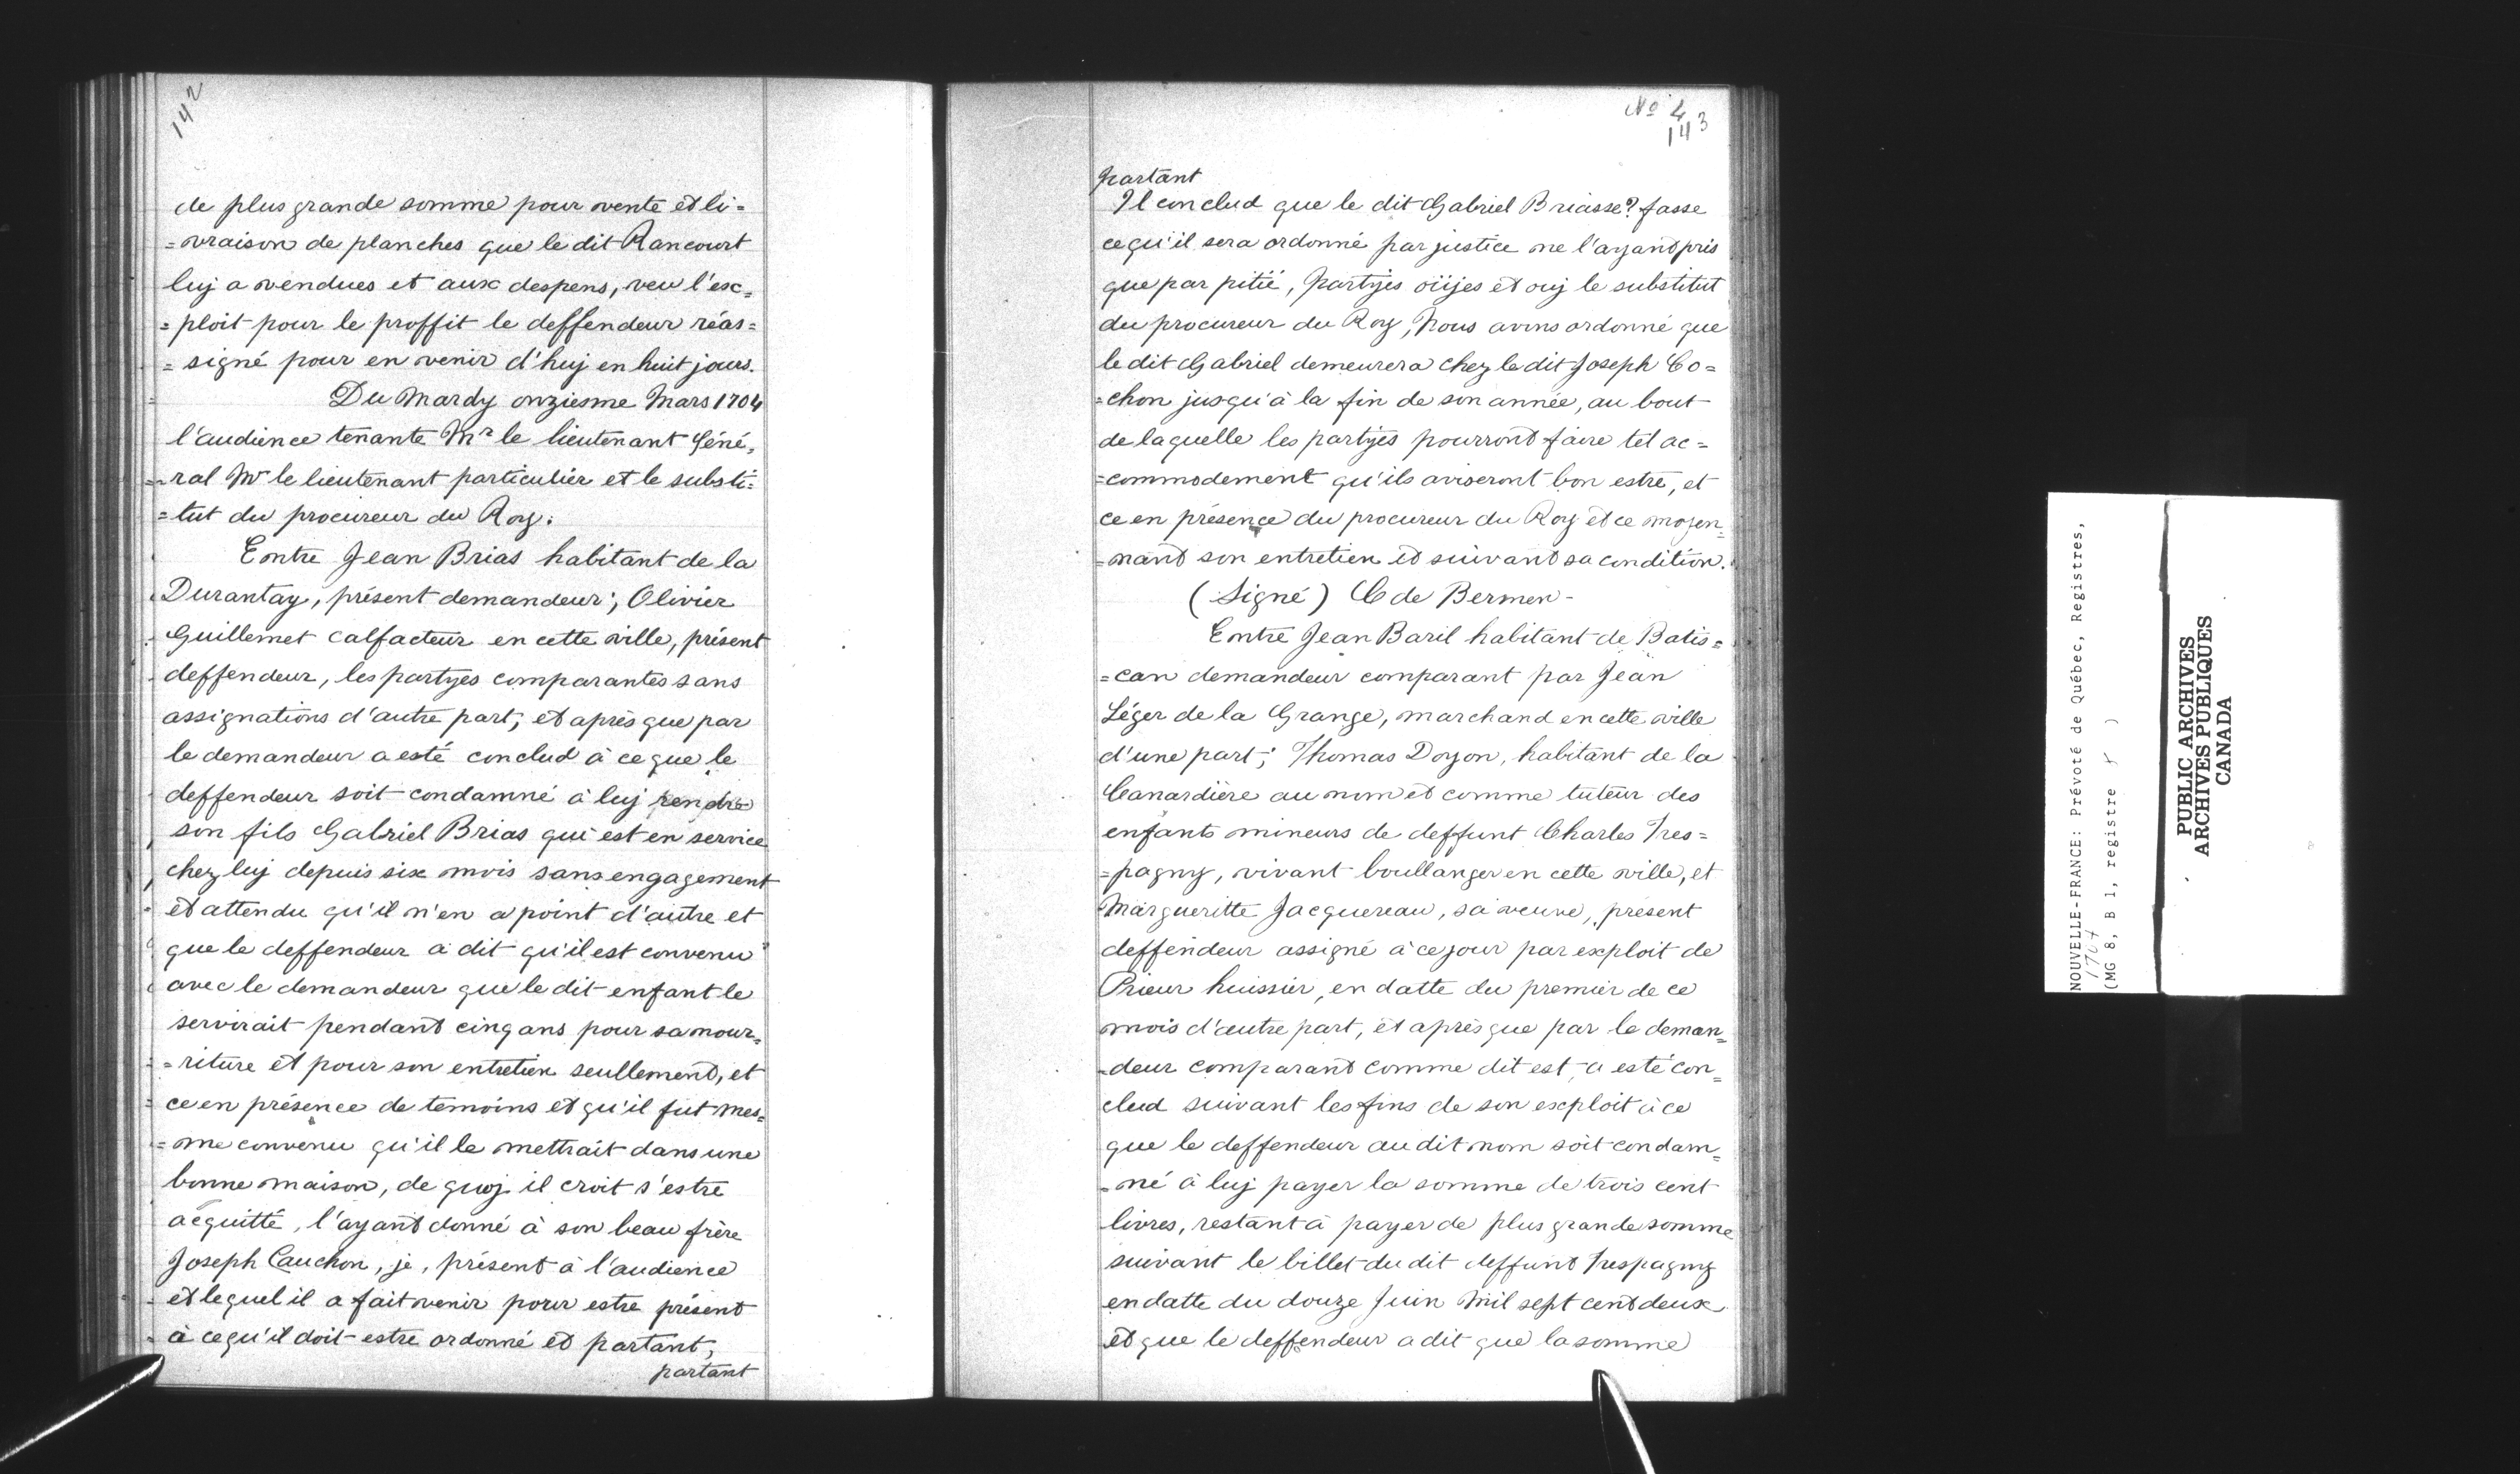 142
de plus grande somme pour vente et li=
=vraison de planches que le dit Rancourt
luj a vendues et aux despens, veu l'ex=
=ploit pour le proffit le deffendeur réas=
=signé pour en venir d'huj en huit jours.
Du Mardy onziesme Mars 1704
l'audience tenante Mr le lieutenant Géné=
=ral Mr le lieutenant particulier et le substi=
=tut du procureur du Roy.
Entre Jean Brias habitant de la
Durantay, présent demandeur; Olivier
Guillemet calfacteur en cette ville, présent
deffendeur, les partyes comparantes sans
assignations d'autre part, et après que par
le demandeur a esté conclud à ce que le
deffendeur soit condamné à luj rendre
son fils Gabriel Brias qui est en service
chez luj depuis six mois sans engagement
et attendu qu'il n'en a point d'autre et
que le deffendeur a dit qu'il est convenu
avec le demandeur que le dit enfant le
servirait pendant cinq ans pour sa nour=
=riture et pour son entretien seullement, et
ce en présence de temoins et qu'il fut mes=
=me convenu qu'il le mettrait dans une
bonne maison, de quoj il croit s'estre
acquitté, l'ayant donné à son beau frère
Joseph Cauchon, je, présent à l'audience
et lequel il a fait venir pour estre présent
à ce qu'il doit estre ordonné et partant,
partant
No 4
143
partant
Il conclud que le dit Gabriel Briasse? fasse
ce qu'il sera ordonné par justice ne l'ayant pris
que par pitié, partyes oüjes et ouj le substitut
du procureur du Roy, Nous avons ordonné que
le dit Gabriel demeurera chez le dit Joseph Co=
=chon jusqu'à la fin de son année, au bout
de laquelle les partyes pourront faire tel ac=
=commodement qu'ils aviseront bon estre, et
ce en présence du procureur du Roy et ce moyen=
=nant son entretien et suivant sa condition.
(Signé) C de Bermen-
Entre Jean Baril habitant de Batis=
=can demandeur comparant par Jean
Léger de la Grange, marchand en cette ville
d'une part; Thomas Doyon, habitant de la
Canardière au nom et comme tuteur des
enfants mineurs de deffunt Charles Tres=
=pagny, vivant boullanger en cette ville, et
Margueritte Jacquereau, sa veuve, présent
deffendeur assigné à ce jour par exploit de
Prieur huissier, en datte du premier de ce
mois d'autre part, et après que par le deman=
=deur comparant comme dit est, a esté con=
clud suivant les fins de son exploit à ce
que le deffendeur au dit nom soit condam=
=né à luj payer la somme de trois cent
livres, restant à payer de plus grande somme
suivant le billet du dit deffunt Trespagny
en datte du douze Juin Mil sept cent deux
et que le deffendeur a dit que la somme
NOUVELLE-FRANCE: Prévoté de Québec, Registres,
1704
(MG 8, B 1, registre )
PUBLIC ARCHIVES
ARCHIVES PUBLIQUES
CANADA